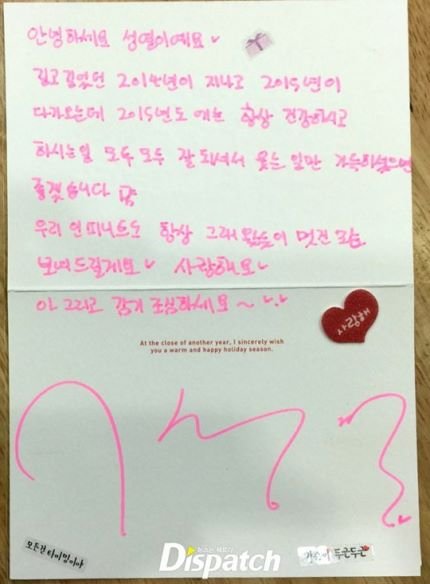 안녕하세요 성열이예요♥
길고 길었던 2014년이 지나고 2015년이
다가오는데 2015년도 에는 항상 건강하시고
하시는일 모두 모두 잘 되셔서 웃는 일만 가득하셨으면
좋겠습니다
우리 인피니트도 항상 그래왔듯이 멋진 모습
보여드릴게요♥ 사랑해요♥
아 그리고 감기 조심하세요~♥.♥
사랑해
At the close of another year, I sincerely wish
you a warm and happy holiday season.
모든건 타이밍이야
두근두근
Dispatch